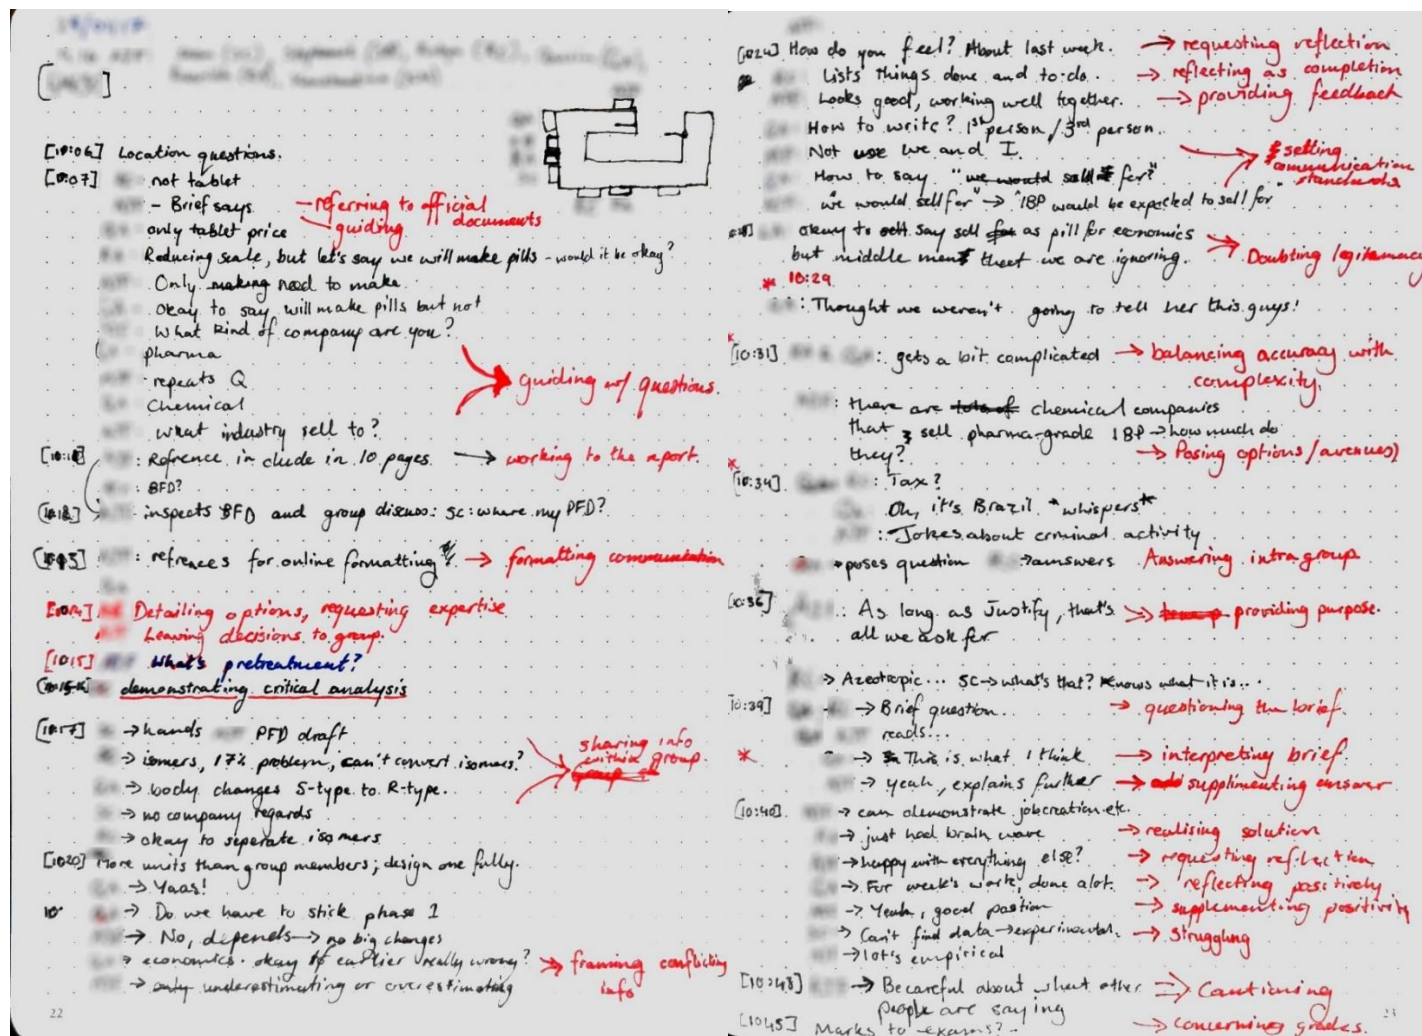 [10:06] Location questions.
[10:07] not tablet
- Brief says → referring to official documents
→ guiding
only tablet price
Reducing scale, but let's say we will make pills - would it be okay?
Only making need to make
okay to say will make pills but not
What kind of company are you?
pharma
repeats Q → guiding w/ questions.
Chemical
What industry sell to?
: Refrence include in 10 pages. → working to the report.
: BFD?
[10:12] inspects BFD and group discuss: SC: where my PFD?
: refrences for online formatting → formatting communication
Detailing options, requesting expertise
Leaving decisions to group.
[10:15] What's pretreatment?
demonstrating critical analysis
[10:17] → hands PFD draft
→ isomers, 17% problem, can't convert isomers? sharing info within group
→ body changes S-type to R-type.
→ no company regards
→ okay to seperate isomers
[10:20] More units than group members; design one fully.
→ Yaas!
10 → Do we have to stick phase 1
→ No, depends → no big changes
→ economics. okay if earlier really wrong? → framing conflicting info
→ only underestimating or overestimating
22
[10:24] How do you feel? About last week. → requesting reflection
Lists things done and to-do.. → reflecting as completion
Looks good, working well together. → providing feedback
How to write? 1st person / 3rd person.
Not use we and I. → setting communication standards
How to say "we would sell for?"
"we would sell for" → "IBP would be expected to sell for"
okay to say sell for as pill for economics
but middle men that we are ignoring. → Doubting legitemacy
* 10:29
: Thought we weren't going to tell her this guys!
[10:31] : gets a bit complicated → balancing accuracy with complexity.
: there are lots of chemical companies
that sell pharma-grade IBP → how much do
they? → Posing options/avenues)
[10:34] : Tax?
Oh, it's Brazil *whispers*
: Jokes about crminal activity
→ poses question → answers Answering intragroup
[10:36] : As long as Justify, that's → providing purpose.
all we ask for
→ Azeotropic... SC → what's that? Knows what it is...
[10:39] → Brief question.. → questioning the brief.
reads...
* → This is what I think → interpreting brief.
→ yeah, explains further → supplimenting answer
[10:40] → can demonstrate jobcreation etc.
→ just had brain wave → realising solution
→ happy with everything else? → requesting reflection
→ For week's work, done alot. → reflecting positively
→ Yeah, good position → supplementing positivity
→ Can't find data → experimental. → struggling
→ lot's empirical
[10:43] → Be careful about what other → Cautioning
people are saying
[10:45] Marks to exams? → concerning grades.
23